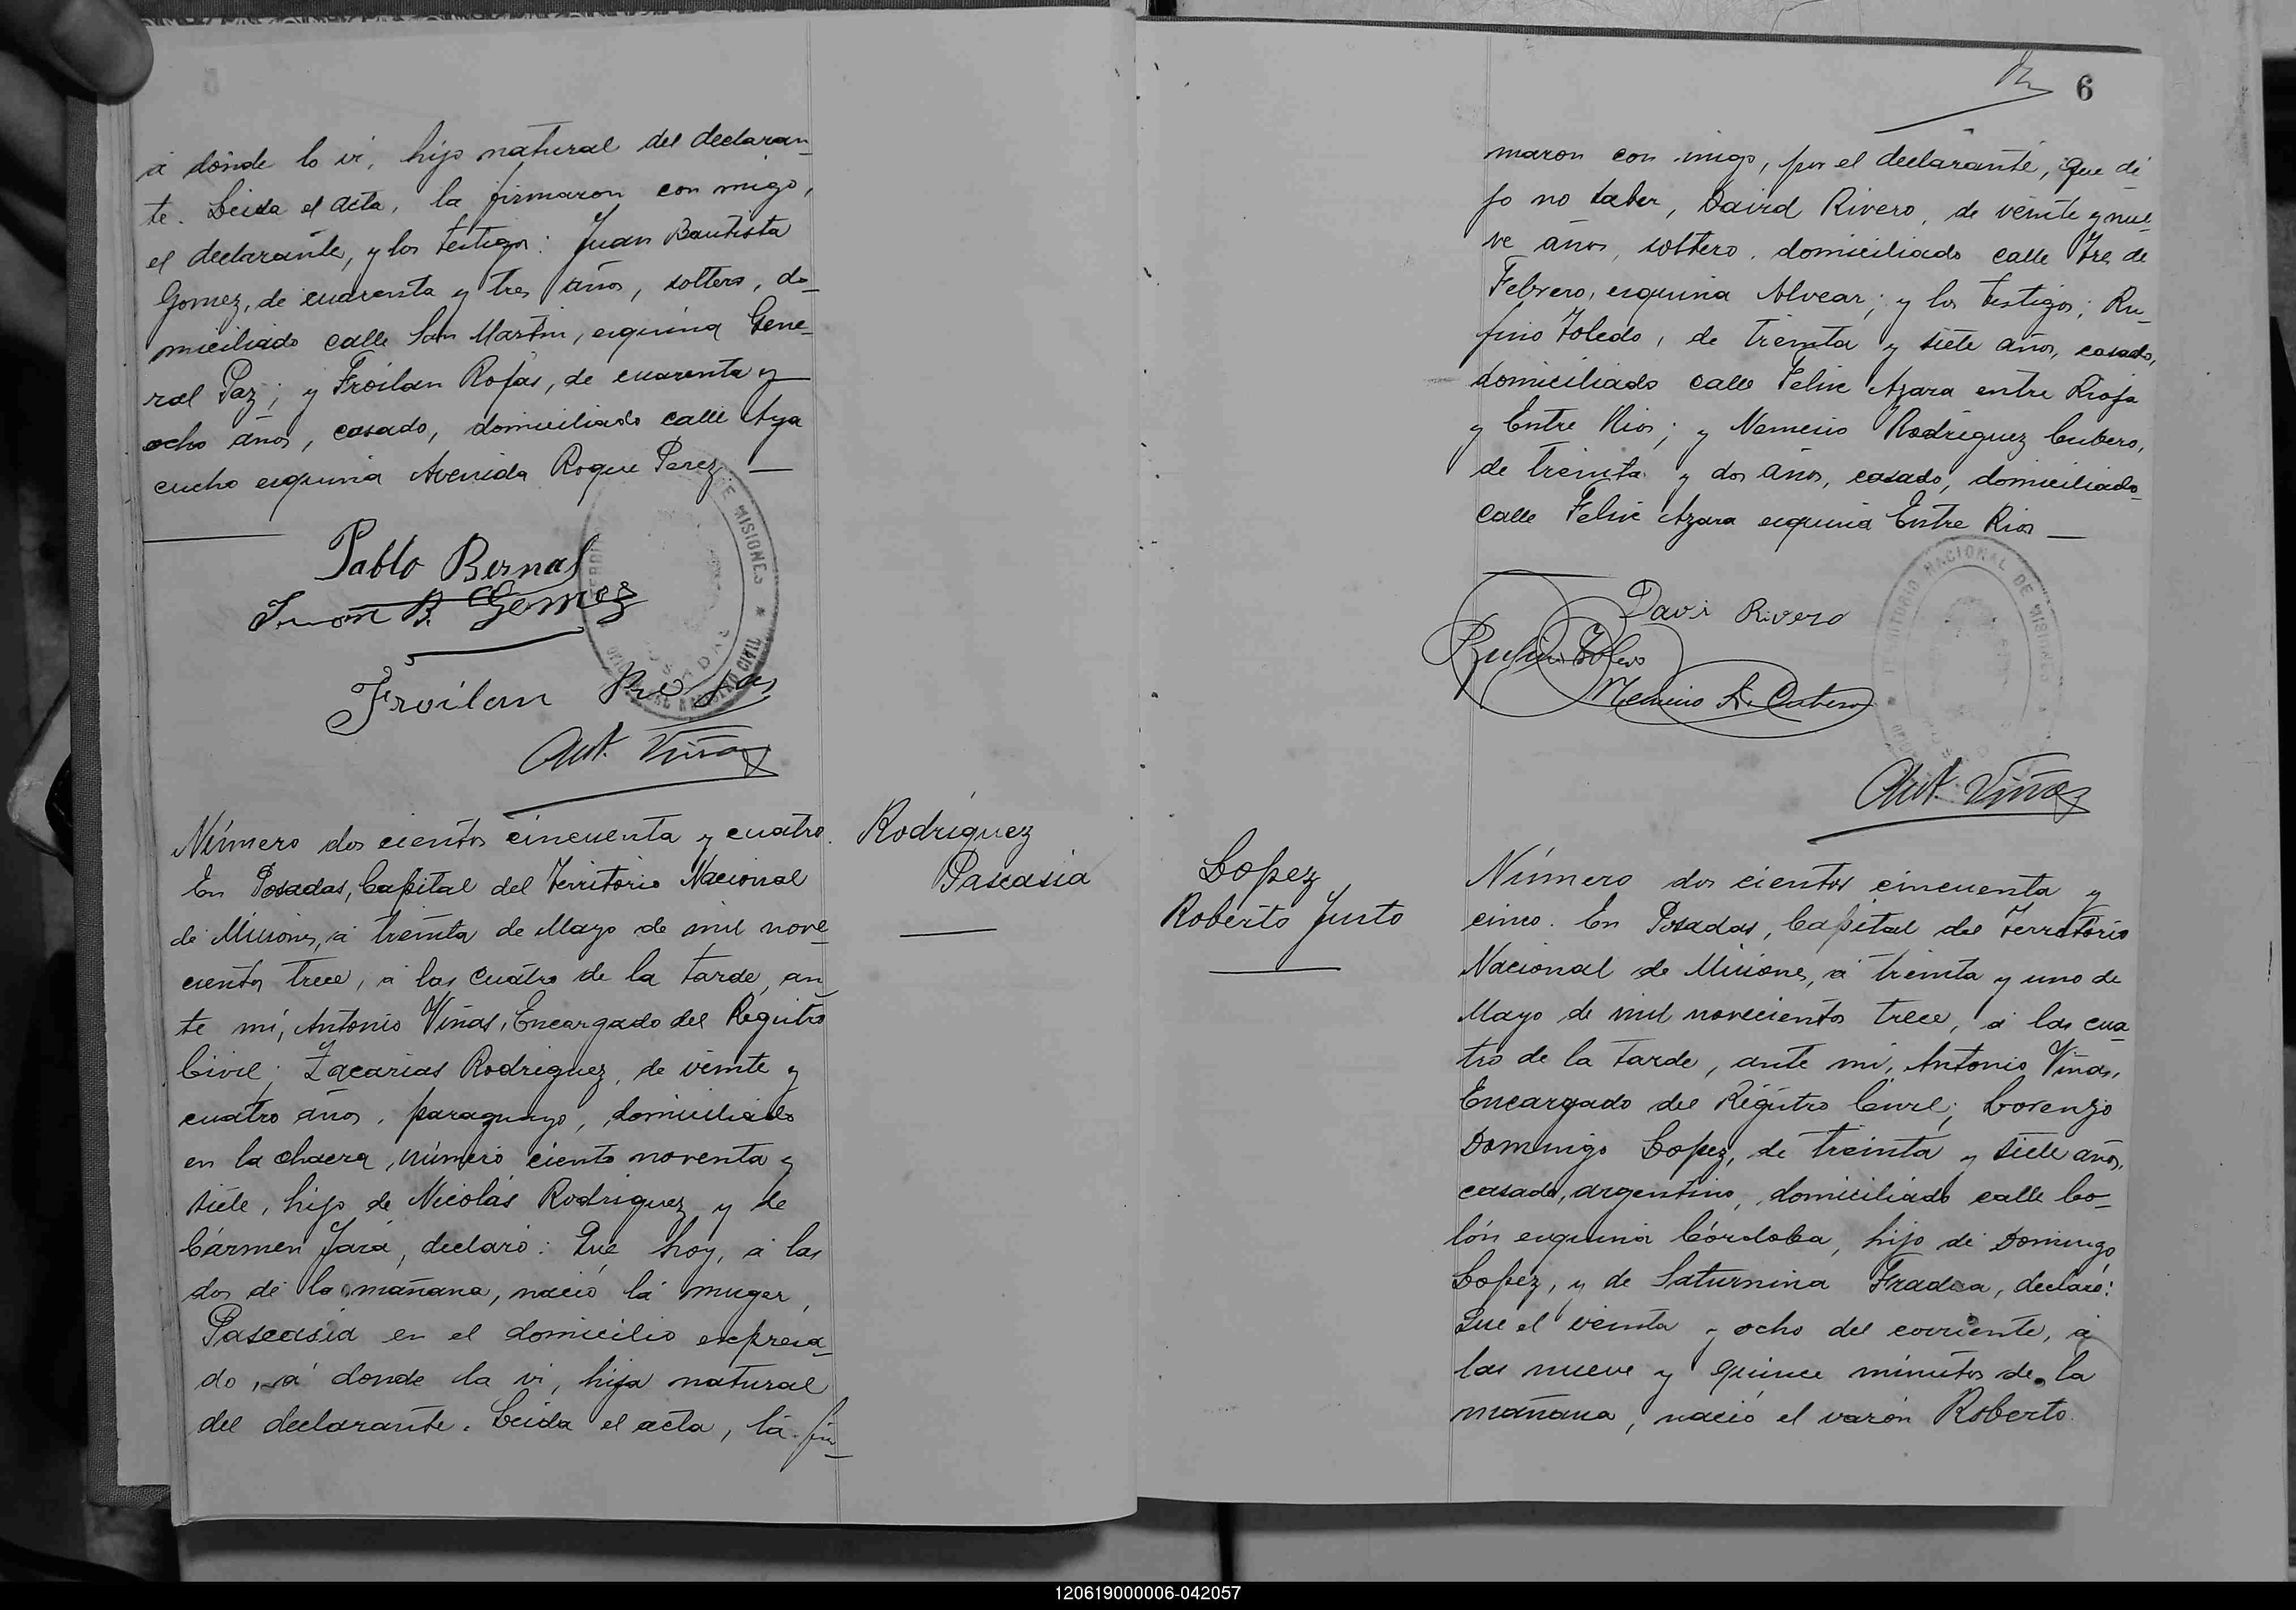 á donde lo ví, hijo natural del declaran-
te. Leida el acta, la firmaron con migo,
el declarante, y los testigos: Juan Bautista
Gomez, de cuarenta y tres años, soltero, do-
miciliado calle San Martin, esquina Gene-
ral Paz; y Froilan Rojas, de cuarenta y
ocho años, casado, domiciliado calle Aya
cucho esquina Avenida Roque Perez —
Pablo Bernal
Juan B. Gomez
Froilan Rojas
Ant. Viñas
Número dos cientos cincuenta y cuatro.
En Posadas, Capital del Territorio Nacional
de Misiones, á treinta de Mayo de mil nove-
cientos trece, á las cuatro de la tarde, an
te mí, Antonio Viñas, Encargado del Registro
Civil; Zacarias Rodriguez, de veinte y
cuatro años, paraguayo, domiciliado
en la chacra, número ciento noventa y
siete, hijo de Nicolás Rodriguez y de
Cármen Jara, declaró: Que hoy, á las
dos de la mañana, nació la muger,
Pascasia en el domicilio expresa-
do, á donde la ví, hija natural
del declarante. Leida el acta, la fir-
Rodriguez
Pascasia
6
maron con migo, por el declarante, que di-
jo no saber, David Rivero, de veinte y nue-
ve años, soltero, domiciliado calle Tres de
Febrero, esquina Alvear; y los testigos; Ru-
fino Toledo, de treinta y siete años, casado,
domiciliado calle Felix Azara entre Rioja
y Entre Rios; y Nemesio Rodriguez Cubero,
de treinta y dos años, casado, domiciliado
calle Felix Azara esquina Entre Rios —
Davi Rivero
Rufino Toledo
Nemesio R. Cubero
TERRITORIO NACIONAL DE MISIONES
Ant. Viñas
Lopez
Roberto Justo
Número dos cientos cincuenta y
cinco. En Posadas, Capital del Territorio
Nacional de Misiones, á treinta y uno de
Mayo de mil novecientos trece, á las cua
tro de la tarde, ante mí, Antonio Viñas,
Encargado del Registro Civil; Lorenzo
Domingo Lopez, de treinta y siete años,
casado, argentino, domiciliado calle Co-
lón esquina Córdoba, hijo de Domingo
Lopez, y de Saturnina declaró:
Que el veinte y ocho del corriente, á
las nueve y quince minutos de la
mañana, nació el varón Roberto
120619000006-042057